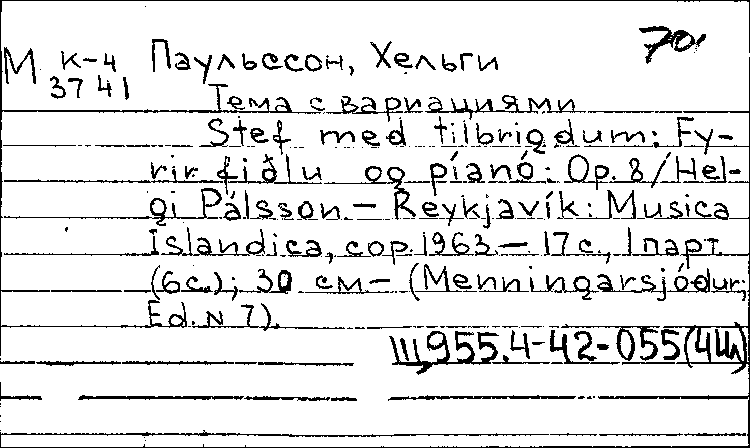 70,
М К-4 Паульссон, Хельги
3741
Тема с вариациями
Stef med tilbrigdum: Fy-
rir fiðlu og píanó: Op. 8/Hel-
gi Pálsson. — Reykjavík: Musica
Islandica, cop. 1963. — 17 с., 1 парт.
(6с.); 30 см — (Menningarsjódur;
Ed. N 7).
Щ955.4-42-055(4Ш)